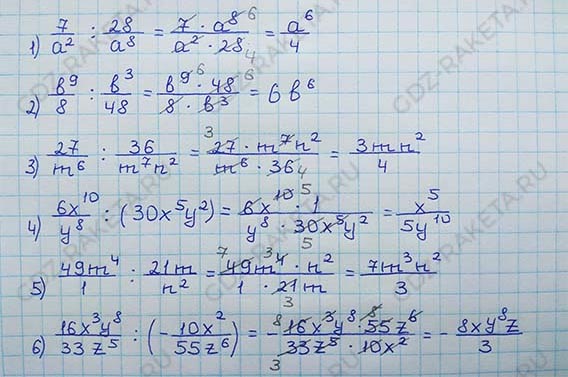 1) 7/a² : 28/a⁸ = 7 · a⁸ ⁶/a² · 28 ₄ = a⁶/4
2) в⁹/8 : в³/48 = в⁹ ⁶ · 48 ⁶/8 · в³ = 6в⁶
3) 27/m⁶ : 36/m⁷n² = ³ 27 · m⁷n²/m⁶ · 36 ₄ = 3mn²/4
4) 6x¹⁰/y⁸ : (30x⁵y²) = 6x¹⁰ ⁵ · 1/y⁸ · 30x⁵y² ₅ = x⁵/5y¹⁰
5) 49m⁴/1 : 21m/n² = ⁷ 49m³ ⁴ · n²/1 · 21m ₃ = 7m³n²/3
6) 16x³y⁸/33z⁵ : (-10x²/55z⁶) = - ⁸ 16x³y⁸ · 55z⁶ ⁵/₃ 33z⁵ · 10x² = - 8xy⁸z/3
GDZ-RAKETA.RU